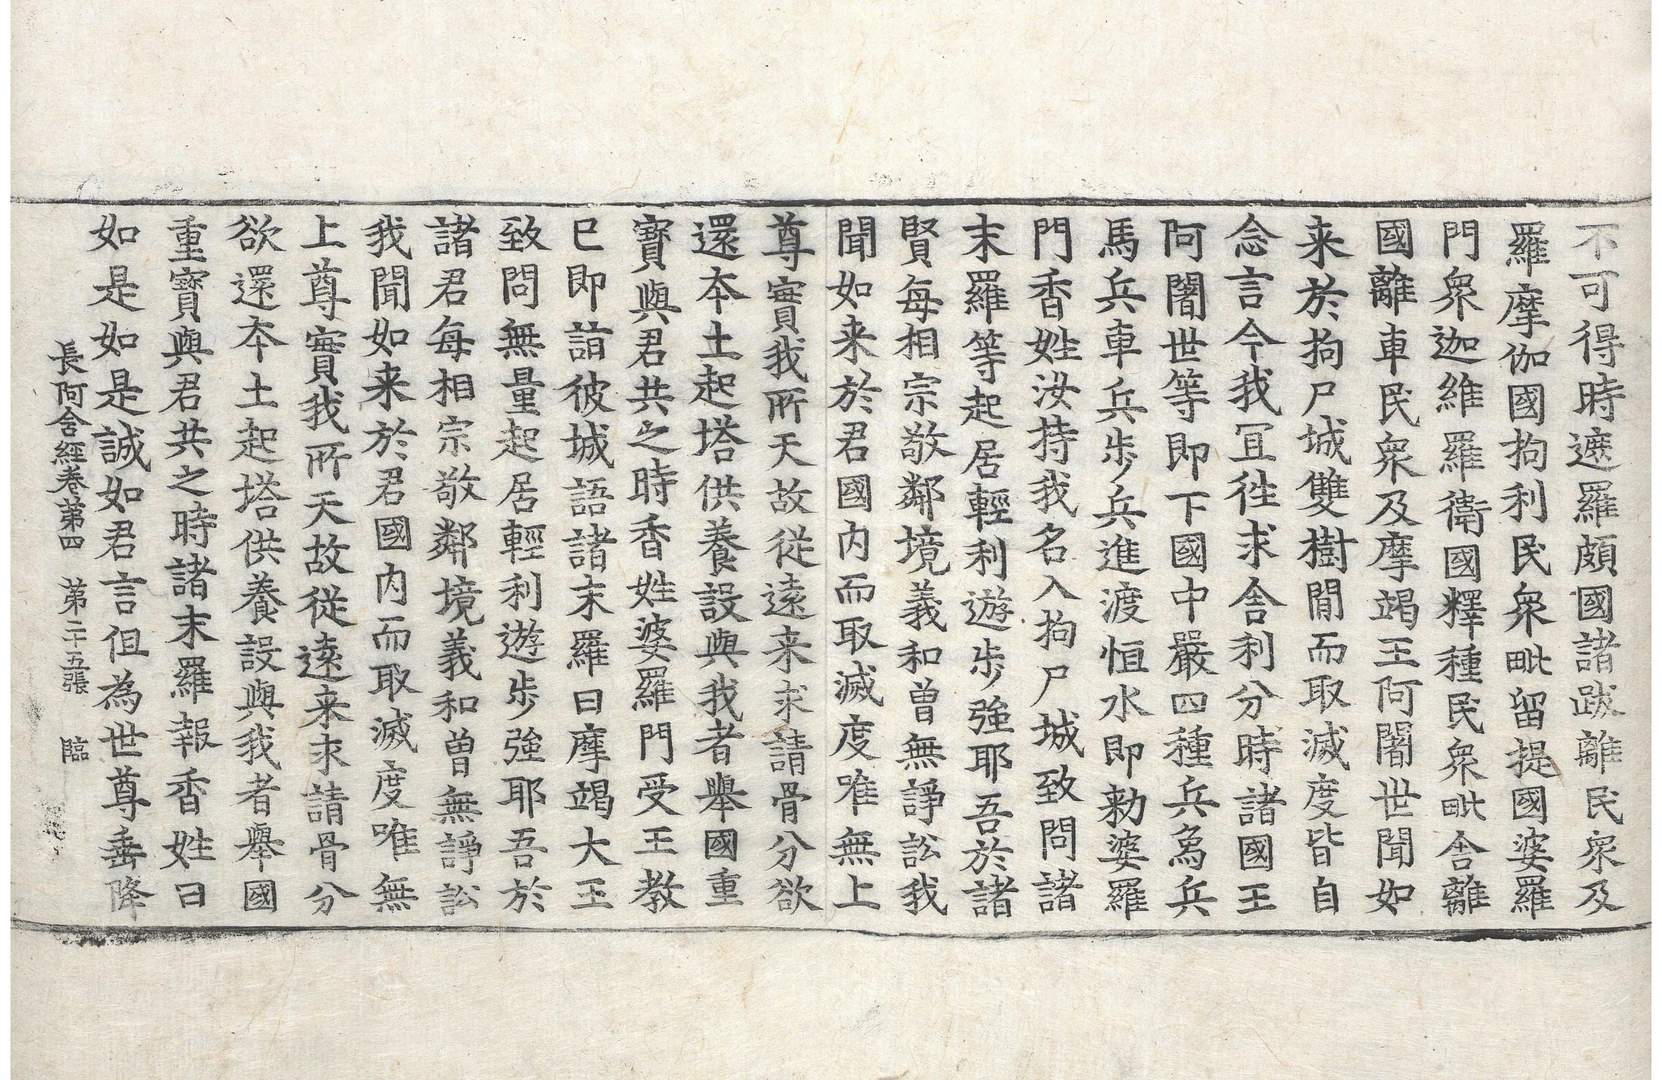 不可得時遮羅頗國諸跋離民衆及
羅摩伽國拘利民衆毗留提國婆羅
門衆迦維羅衛國釋種民衆毗舍離
國離車民衆及摩竭王阿闍世聞如
来於拘尸城雙樹閒而取滅度皆自
念言今我冝徃求舍利分時諸國王
阿闍世等即下國中嚴四種兵象兵
馬兵車兵步兵進渡恒水即勑婆羅
門香姓汝持我名入拘尸城致問諸
末羅等起居輕利遊步強耶吾於諸
賢每相宗敬鄰境義和曾無諍訟我
聞如来於君國内而取滅度唯無上
尊實我所天故從遠来求請骨分欲
還本土起塔供養設與我者舉國重
寶與君共之時香姓婆羅門受王教
已即詣彼城語諸末羅曰摩竭大王
致問無量起居輕利遊步強耶吾於
諸君每相宗敬鄰境義和曾無諍訟
我聞如来於君國内而取滅度唯無
上尊實我所天故從遠来求請骨分
欲還本土起塔供養設與我者舉國
重寶與君共之時諸末羅報香姓曰
如是如是誠如君言但為世尊垂降
長阿含經卷第四　第二十五張　臨